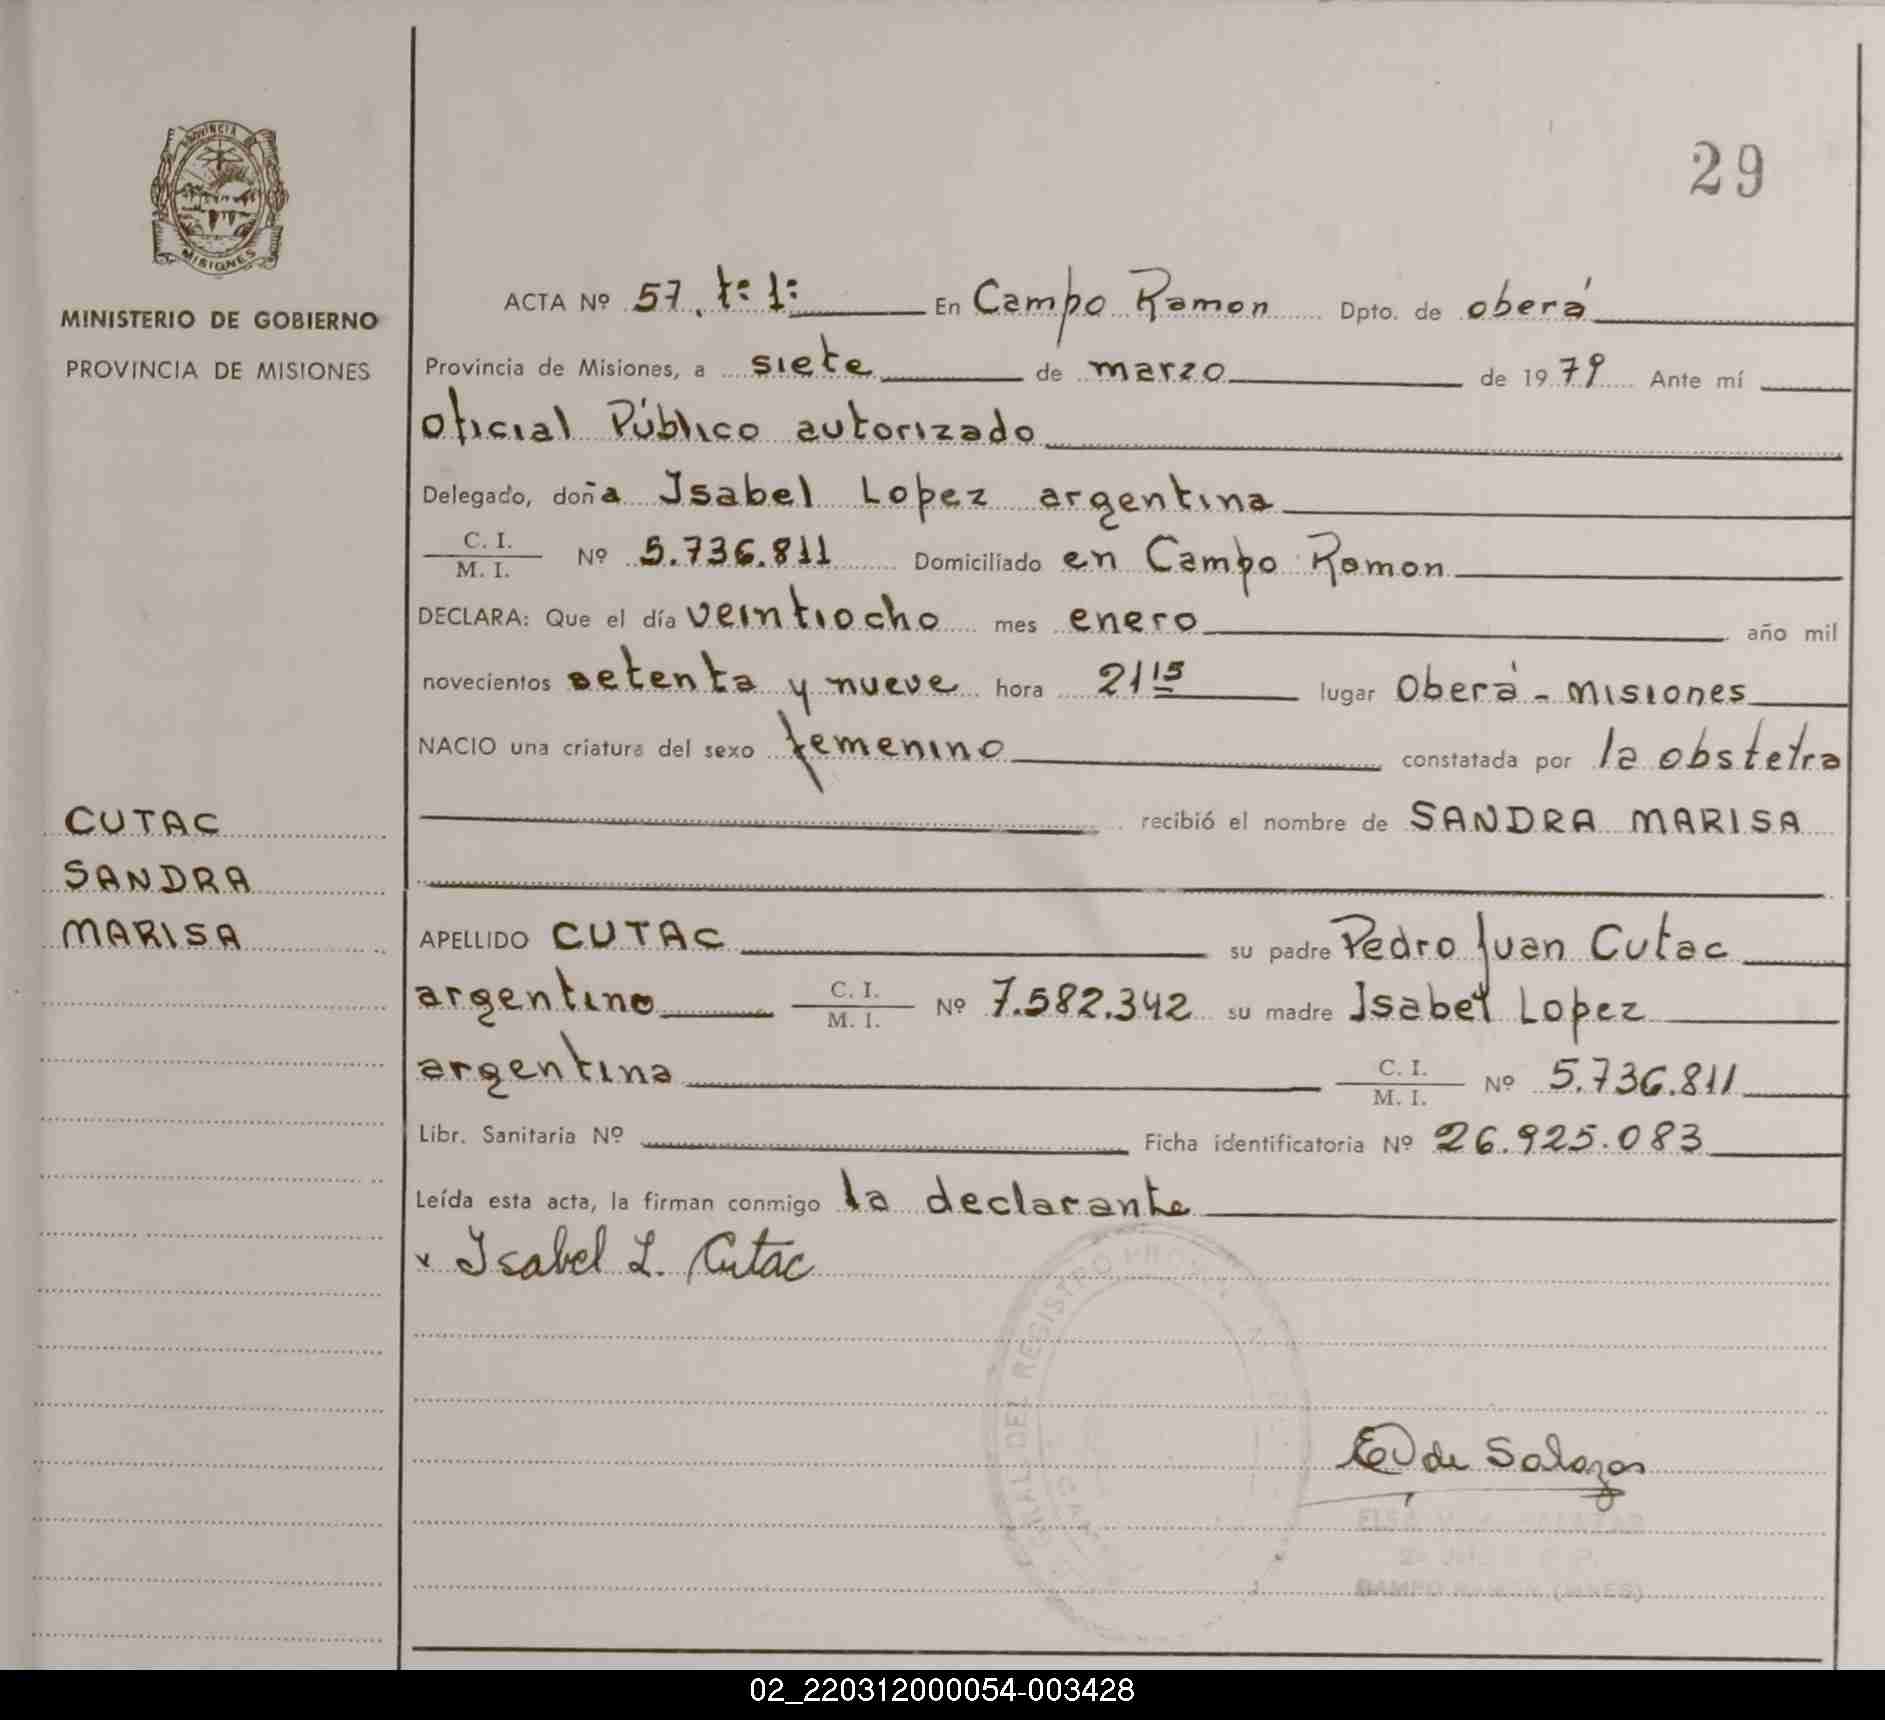 29
PROVINCIA
MISIONES
MINISTERIO DE GOBIERNO
PROVINCIA DE MISIONES
CUTAC
SANDRA
MARISA
ACTA Nº 57. tº 1º En Campo Ramon Dpto. de oberá
Provincia de Misiones, a siete de marzo de 1979 Ante mí
oficial Público autorizado
Delegado, doña Isabel Lopez argentina
C. I. / M. I. Nº 5.736.811 Domiciliado en Campo Ramon
DECLARA: Que el día veintiocho mes enero año mil
novecientos setenta y nueve hora 21 15 lugar Oberá - misiones
NACIO una criatura del sexo femenino constatada por la obstetra
recibió el nombre de SANDRA MARISA
APELLIDO CUTAC su padre Pedro Juan Cutac
argentino C. I. / M. I. Nº 7.582.342 su madre Isabel Lopez
argentina C. I. / M. I. Nº 5.736.811
Libr. Sanitaria Nº Ficha identificatoria Nº 26.925.083
Leída esta acta, la firman conmigo la declarante
x Isabel L. Cutac
DEL REGISTRO
E V de Salazar
CAMPO RAMON (MNES)
02_220312000054-003428